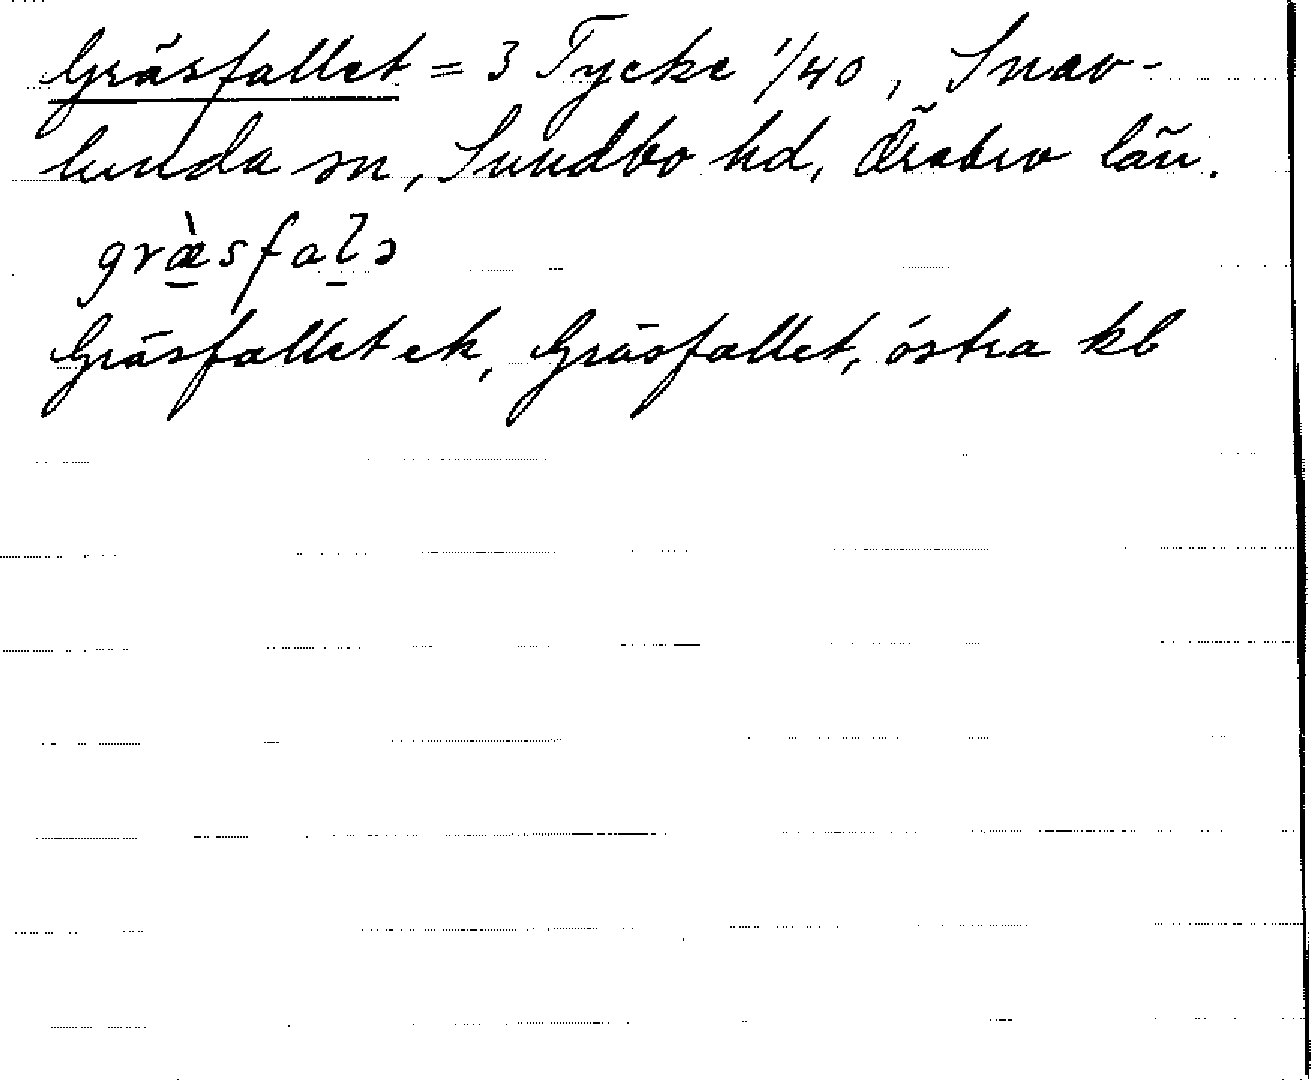 Gräsfallet = 3 Tycke 1/40, Snav-
lunda sn, Sundbo hd, Örebro län.
græ̀sfalə
Gräsfallet ek, Gräsfallet, östra kb